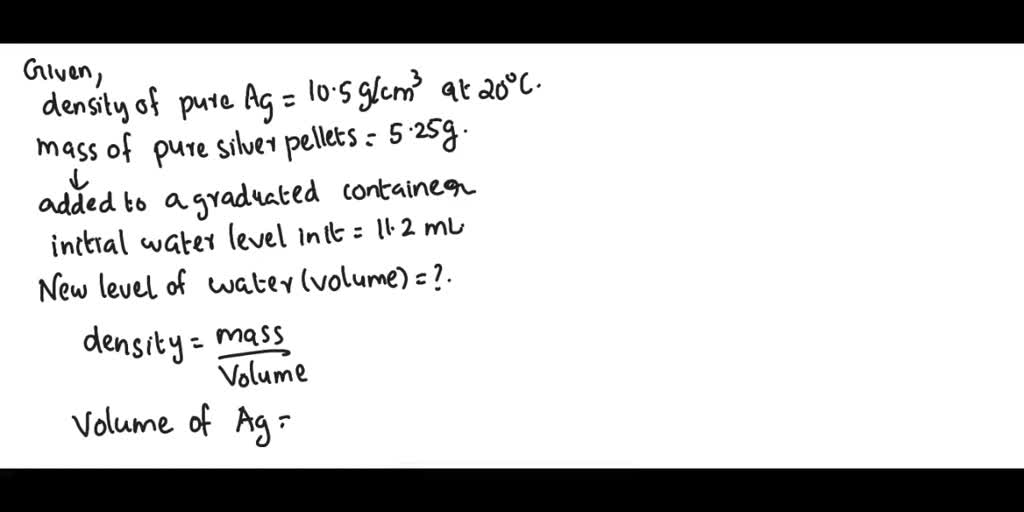 Given,
density of pure Ag = 10.5 g/cm³ at 20°C.
mass of pure silver pellets = 5.25g.
↓
added to a graduated container
initial water level in it = 11.2 mL
New level of water (volume) = ?.
density = mass
Volume
Volume of Ag =